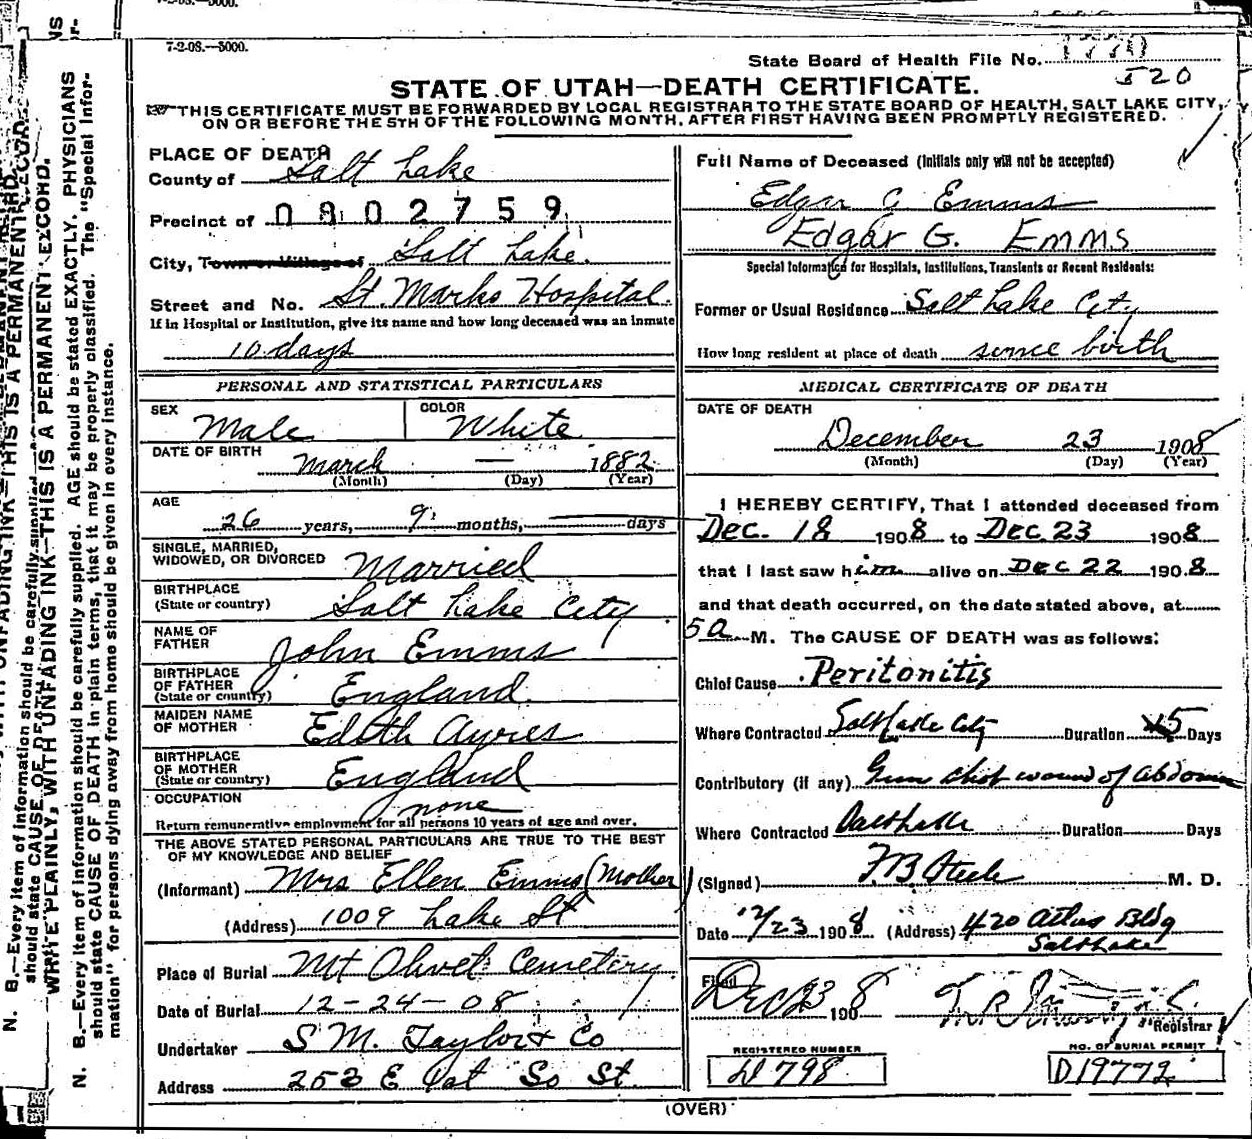 7-2-08.—5000.
7-2-08.—5000.
State Board of Health File No. 1770
520
STATE OF UTAH—DEATH CERTIFICATE.
THIS CERTIFICATE MUST BE FORWARDED BY LOCAL REGISTRAR TO THE STATE BOARD OF HEALTH, SALT LAKE CITY,
ON OR BEFORE THE 5TH OF THE FOLLOWING MONTH, AFTER FIRST HAVING BEEN PROMPTLY REGISTERED.
PLACE OF DEATH
County of Salt Lake
Precinct of 0802759
City, Town or Village of Salt Lake.
Street and No. St. Marks Hospital.
If in Hospital or Institution, give its name and how long deceased was an inmate
10 days
Full Name of Deceased (Initials only will not be accepted)
Edgar G Emms
Edgar G. Emms
Special Information for Hospitals, Institutions, Transients or Recent Residents:
Former or Usual Residence Salt Lake City
How long resident at place of death since birth
PERSONAL AND STATISTICAL PARTICULARS
SEX Male COLOR White
DATE OF BIRTH March — 1882
(Month) (Day) (Year)
AGE 26 years, 9 months, days
SINGLE, MARRIED,
WIDOWED, OR DIVORCED Married
BIRTHPLACE
(State or country) Salt Lake City
NAME OF
FATHER John Emms
BIRTHPLACE
OF FATHER
(State or country) England
MAIDEN NAME
OF MOTHER Edith Ayres
BIRTHPLACE
OF MOTHER
(State or country) England
OCCUPATION none
Return remunerative employment for all persons 10 years of age and over.
THE ABOVE STATED PERSONAL PARTICULARS ARE TRUE TO THE BEST
OF MY KNOWLEDGE AND BELIEF
(Informant) Mrs Ellen Emms (Mother)
(Address) 1009 Lake St
Place of Burial Mt Olivet Cemetery
Date of Burial 12-24-08
Undertaker S M. Taylor & Co
Address 253 E 1st So St.
MEDICAL CERTIFICATE OF DEATH
DATE OF DEATH
December 23 1908
(Month) (Day) (Year)
I HEREBY CERTIFY, That I attended deceased from
Dec. 18 1908 to Dec 23 1908
that I last saw him alive on Dec 22 1908
and that death occurred, on the date stated above, at
5 a M. The CAUSE OF DEATH was as follows:
Chief Cause Peritonitis
Where Contracted Salt Lake City Duration 5 Days
Contributory (if any) Gun shot wound of Abdomen
Where Contracted Salt Lake Duration Days
(Signed) F. B. Steele M. D.
Date 12/23 1908 (Address) 420 Atlas Bldg
Salt Lake
Filed Dec 23 1908
Registrar
REGISTERED NUMBER
D 798
NO. OF BURIAL PERMIT
D19772
(OVER)
N. B.—Every item of information should be carefully supplied. AGE should be stated EXACTLY. PHYSICIANS
should state CAUSE OF DEATH in plain terms, that it may be properly classified. The "Special Infor-
mation" for persons dying away from home should be given in every instance.
WRITE PLAINLY, WITH UNFADING INK—THIS IS A PERMANENT RECORD.
N. B.—Every item of information should be carefully supplied
should state CAUSE OF DEATH